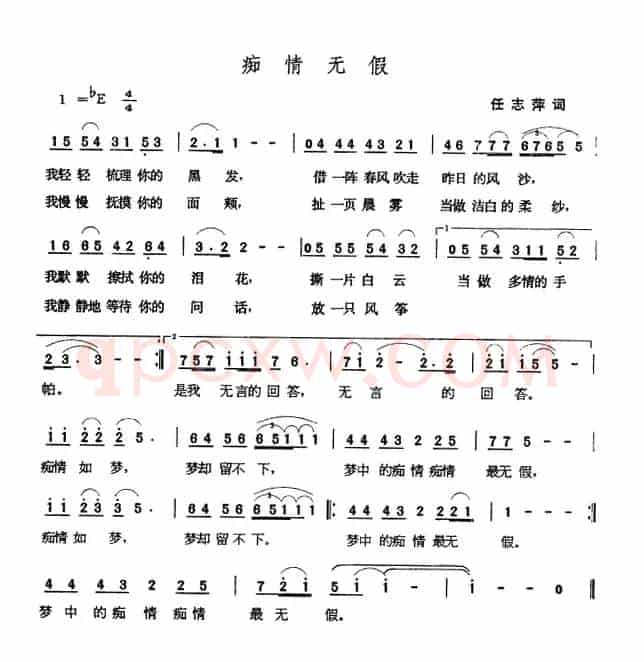 痴情无假
1 =♭E 4/4
任志萍词
15 54 31 53 | 2·1 1 - - | 04 44 43 21 | 46 777 6765 5 |
我轻轻 梳理你的 黑发, 借一阵春风吹走 昨日的风沙,
我慢慢 抚摸你的 面颊, 扯一页晨雾 当做洁白的柔纱,
16 65 42 64 | 3·2 2 - - | 05 55 54 32 | 1 05 54 311 52 |
我默默 擦拭你的 泪花, 撕一片白云 当做 多情的手
我静静地等待你的 问话, 放一只风筝
23· 3 - - :‖ 2 757 iii 76· | 7i 2 - 2·2 | 2i i - - |
帕。 是我 无言的回答, 无言 的回答。
ii 22 25· | 64 56 65111 | 44 43 42 25 | 77 5 - - |
痴情如梦, 梦却留不下, 梦中的痴情痴情 最无假,
ii 22 35· | 64 56 65111 ‖: 44 43 42 221 | 1 - - - :‖
痴情如梦, 梦却留不下。 梦中的痴情最无 假。
44 43 22 25 | 72 i | 5 i - - | i - - 0 ‖
梦中的痴情痴情 最无 假。
qpcxw.com